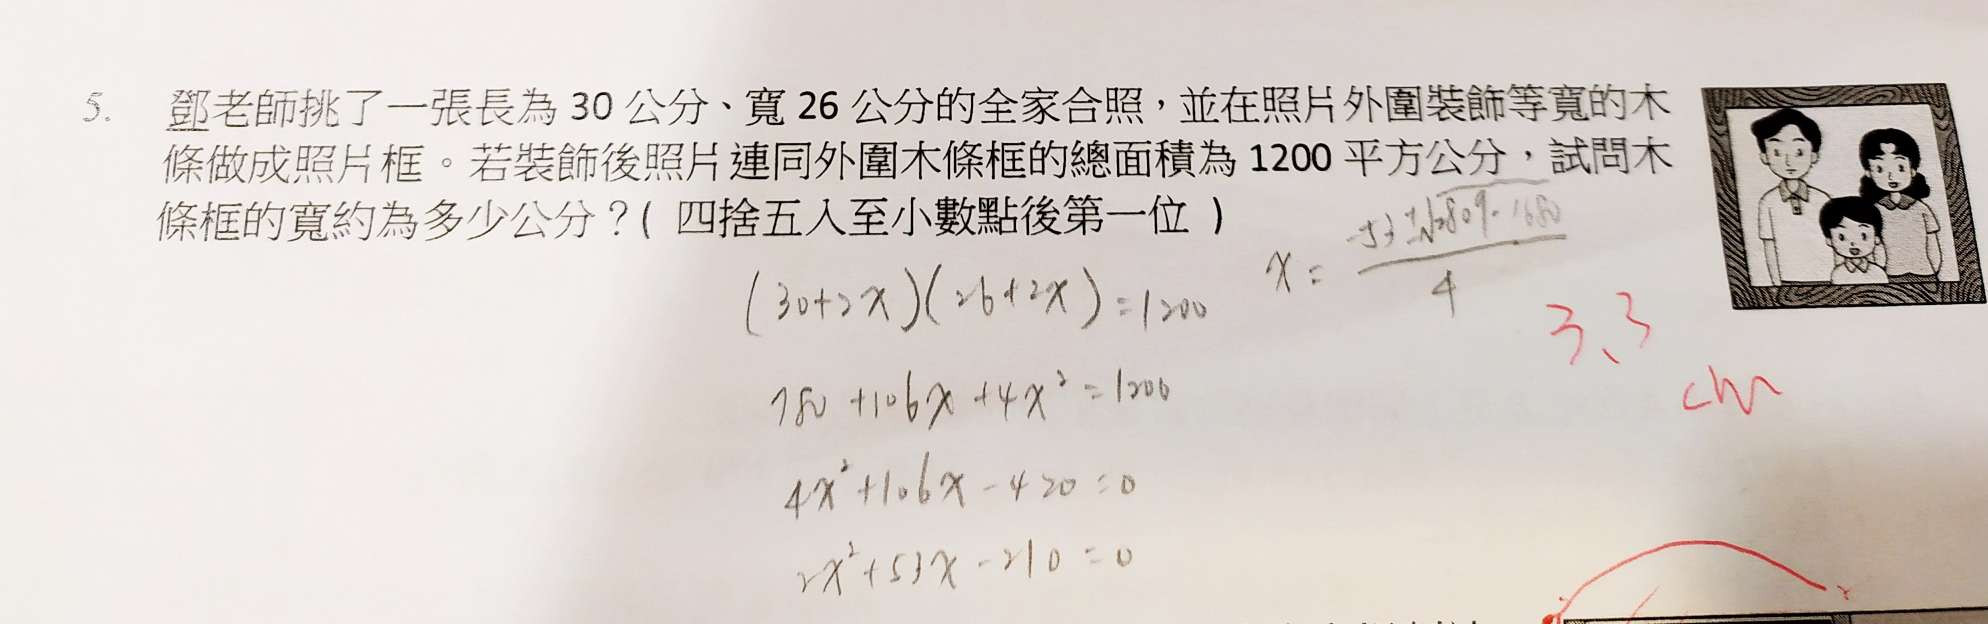 5. 鄧老師挑了一張長為 30 公分、寬 26 公分的全家合照，並在照片外圍裝飾等寬的木
條做成照片框。若裝飾後照片連同外圍木條框的總面積為 1200 平方公分，試問木
條框的寬約為多少公分？( 四捨五入至小數點後第一位 )
(30+2x)(26+2x)=1200
x = \frac{-53±√2809-1680}{4}
3.3
cm
780+106x+4x²=1200
4x²+106x-420=0
2x²+53x-210=0